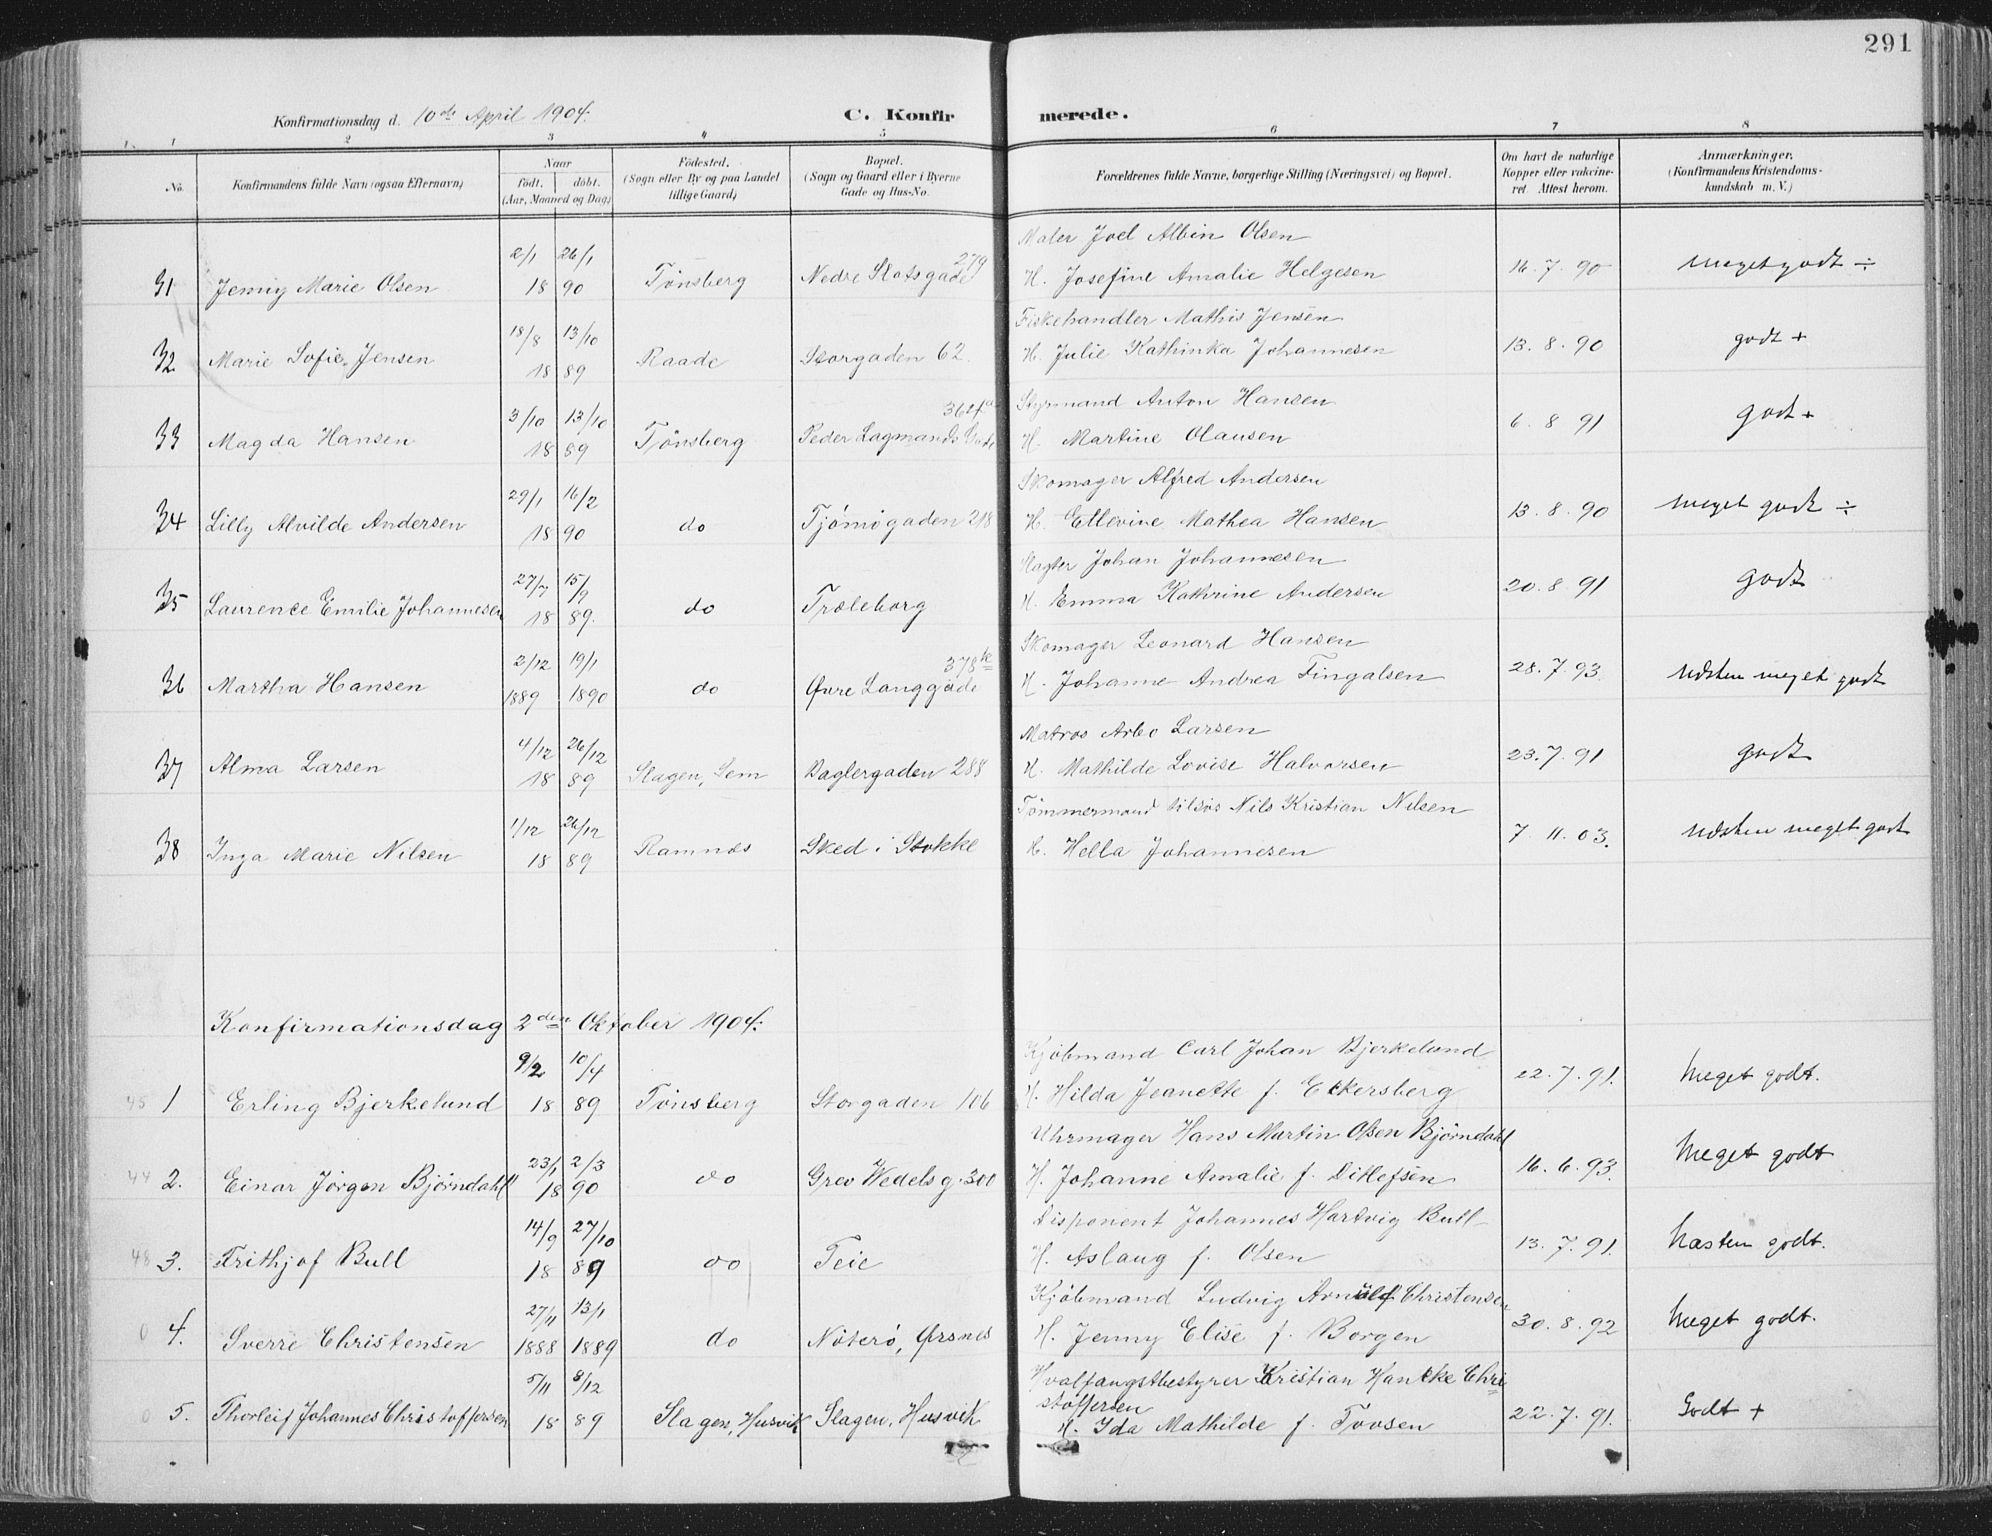 291
Konfirmationsdag d. 10de April 1904.
C. Konfirmerede.
1. 1 2 3 4 5 6 7 8
No. Konfirmandens fulde Navn (ogsaa Efternavn) Naar födt. döbt. (Aar, Maaned og Dag) Födested. (Sogn eller By og paa Landet tillige Gaard) Bopæl. (Sogn og Gaard eller i Byerne Gade og Hus-No. Forældrenes fulde Navne, borgerlige Stilling (Næringsvei) og Bopæl. Om havt de naturlige Kopper eller vakcineret Attest herom. Anmærkninger. (Konfirmandens Kristendomskundskab m. V.)
Maler Joel Albin Olsen
31 Jenny Marie Olsen 2/1 26/1 18 90 Tønsberg Nedre Slotsgade 279 H. Josefine Amalie Helgesen 16.7.90 meget godt ÷
Fiskehandler Mathis Jensen
32 Marie Sofie Jensen 18/8 13/10 18 89 Raade Storgaden 62. H. Julie Kathinka Johannesen 13.8.90 godt +
Styrmand Anton Hansen
33 Magda Hansen 3/10 13/10 18 89 Tønsberg Peder Lagmands Gade 364a H. Martine Olausen 6.8 91 godt +
Skomager Alfred Andersen
34 Lilly Alvilde Andersen 29/1 16/2 18 90 do Tjømøgaden 218 H. Ellevine Mathea Hansen 13.8.90 meget godt ÷
Slagter Johan Johannesen
35 Laurence Emilie Johannesen 27/7 15/9 18 89. do Træleborg H. Emma Kathrine Andersen 20.8.91 godt
Skomager Leonard Hansen
36 Martha Hansen 2/12 19/1 1889 1890 do Øvre Langgade 378k H. Johanne Andrea Fingalsen 28.7.93 næsten meget godt
Matros Arbo Larsen
37 Alma Larsen 4/12 26/12 18 89 Slagen, Sem Baglergaden 288 H. Mathilde Lovise Halvorsen 23.7.91 godt
Tømmermand tilsøs Nils Kristian Nilsen
38 Inga Marie Nilsen 1/12 26/12 18 89 Ramnæs Sked i Stokke H. Hella Johannesen 7.11.03. næsten meget godt
Konfirmationsdag 2den Oktober 1904.
Kjöbmand Carl Johan Bjerkelund
45 1 Erling Bjerkelund 9/2 10/4 18 89 Tönsberg Storgaden 106 H. Hilda Jeanette f. Eckersberg 22.7.91. Meget godt.
Uhrmager Hans Martin Olsen Björndahl
44 2. Einar Jörgen Björndahl 23/1 2/3 18 90 do Grev Wedels g. 300 H. Johanne Amalie f. Ditlefsen 16.6.93. Meget godt
Disponent Johannes Hartvig Bull
48 3. Frithjof Bull 14/9 27/10 18 89 do Teie H. Aslaug f. Olsen 13.7.91. Næsten godt.
Kjöbmand Ludvig Arnulf Christensen
0 4. Sverre Christensen 27/11 13/1 1888 1889 do Nöterö, Ørsnes H. Jenny Elise f. Borgen 30.8.92 Meget godt.
Hvalfangstbestyrer Kristian Hancke Christoffersen
0 5. Thorleif Johannes Christoffersen 5/11 8/12 18 89 Slagen, Husvik Slagen, Husvik H. Ida Mathilde f. Tovsen 22.7.91. Godt +